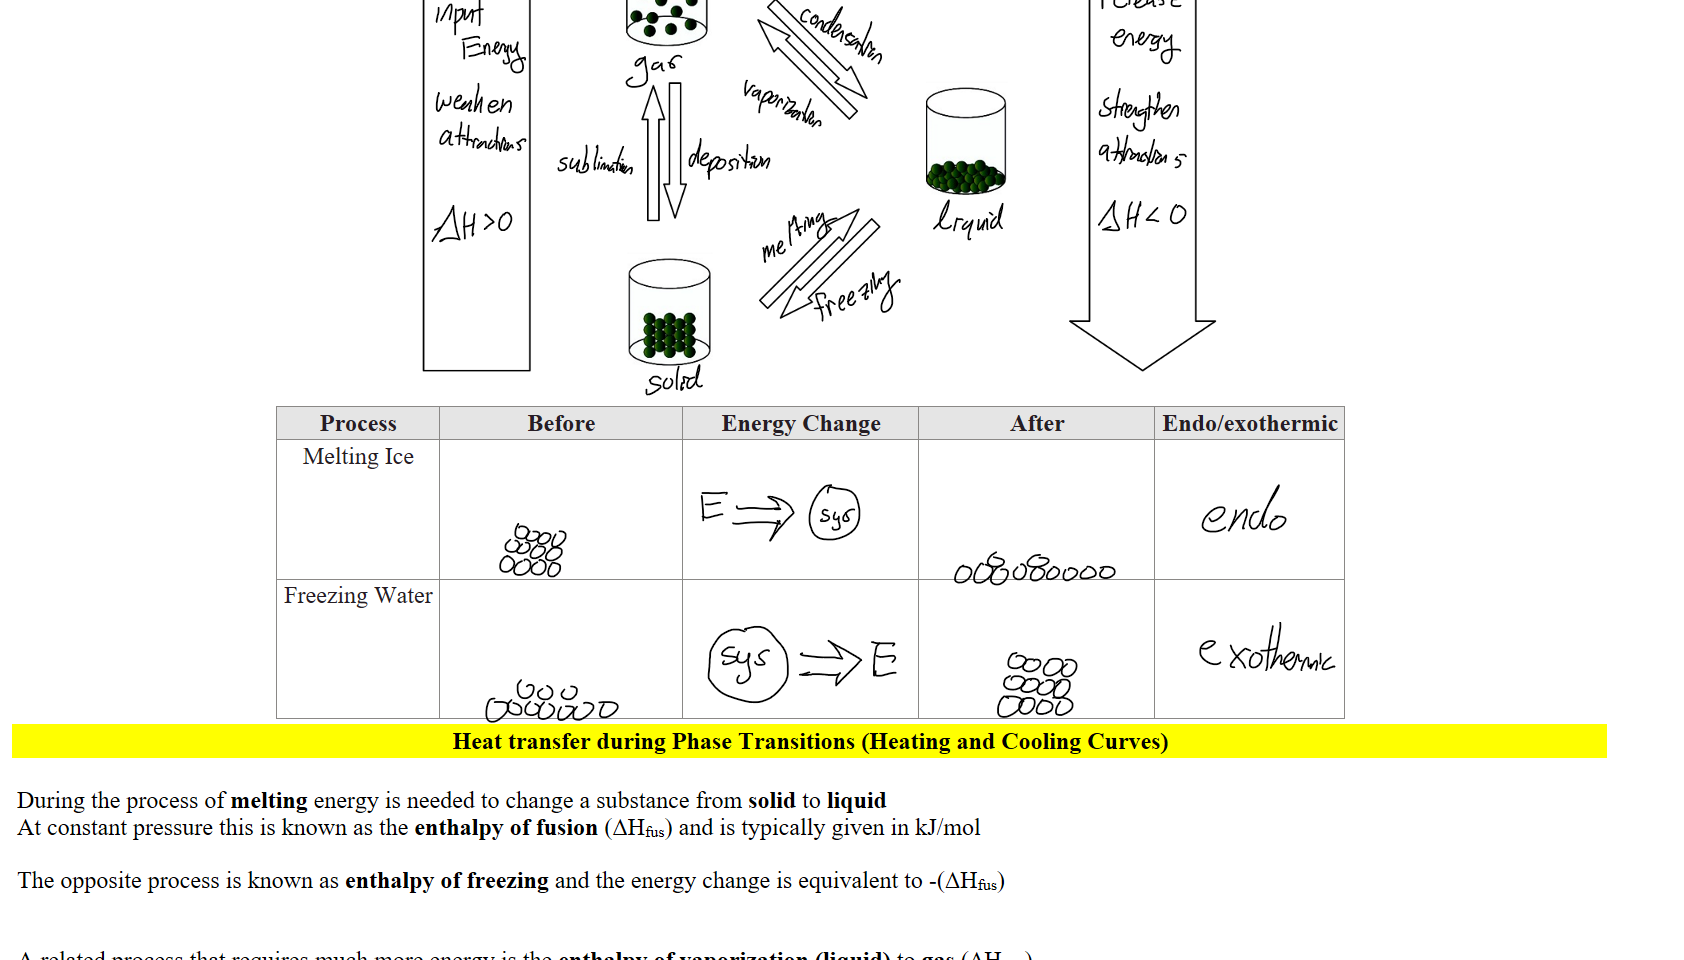 input
Energy
weaken
attractions
ΔH>0
gas
condensation
vaporization
sublimation
deposition
melting
freezing
liquid
solid
release
energy
strengthen
attractions
ΔH<0
Process Before Energy Change After Endo/exothermic
Melting Ice
E sys
endo
Freezing Water
sys E
exothermic
Heat transfer during Phase Transitions (Heating and Cooling Curves)
During the process of melting energy is needed to change a substance from solid to liquid
At constant pressure this is known as the enthalpy of fusion (ΔHfus) and is typically given in kJ/mol
The opposite process is known as enthalpy of freezing and the energy change is equivalent to -(ΔHfus)
A related process that requires much more energy is the enthalpy of vaporization (liquid) to gas (ΔH